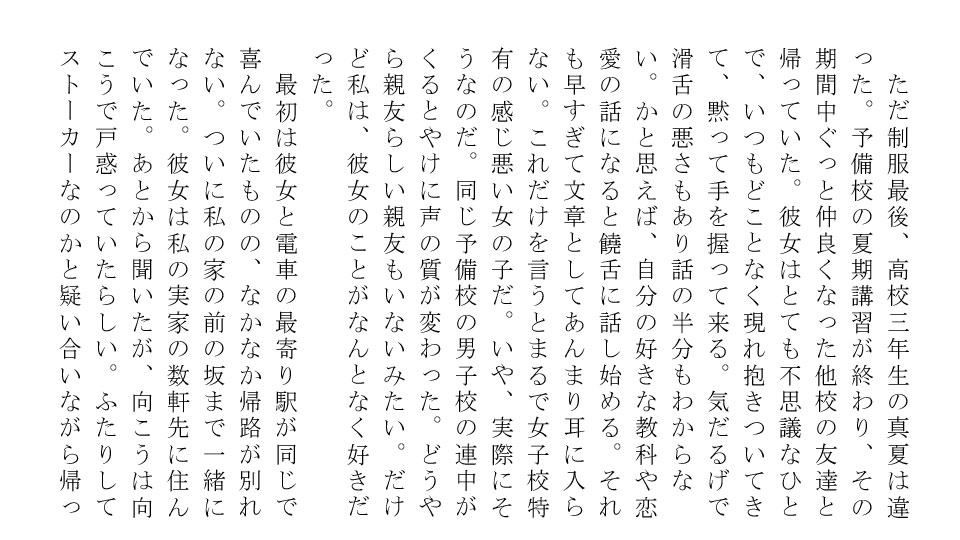 ただ制服最後、高校三年生の真夏は違
った。予備校の夏期講習が終わり、その
期間中ぐっと仲良くなった他校の友達と
帰っていた。彼女はとても不思議なひと
で、いつもどことなく現れ抱きついてき
て、黙って手を握って来る。気だるげで
滑舌の悪さもあり話の半分もわからな
い。かと思えば、自分の好きな教科や恋
愛の話になると饒舌に話し始める。それ
も早すぎて文章としてあんまり耳に入ら
ない。これだけを言うとまるで女子校特
有の感じ悪い女の子だ。いや、実際にそ
うなのだ。同じ予備校の男子校の連中が
くるとやけに声の質が変わった。どうや
ら親友らしい親友もいないみたい。だけ
ど私は、彼女のことがなんとなく好きだ
った。
　最初は彼女と電車の最寄り駅が同じで
喜んでいたものの、なかなか帰路が別れ
ない。ついに私の家の前の坂まで一緒に
なった。彼女は私の実家の数軒先に住ん
でいた。あとから聞いたが、向こうは向
こうで戸惑っていたらしい。ふたりして
ストーカーなのかと疑い合いながら帰っ